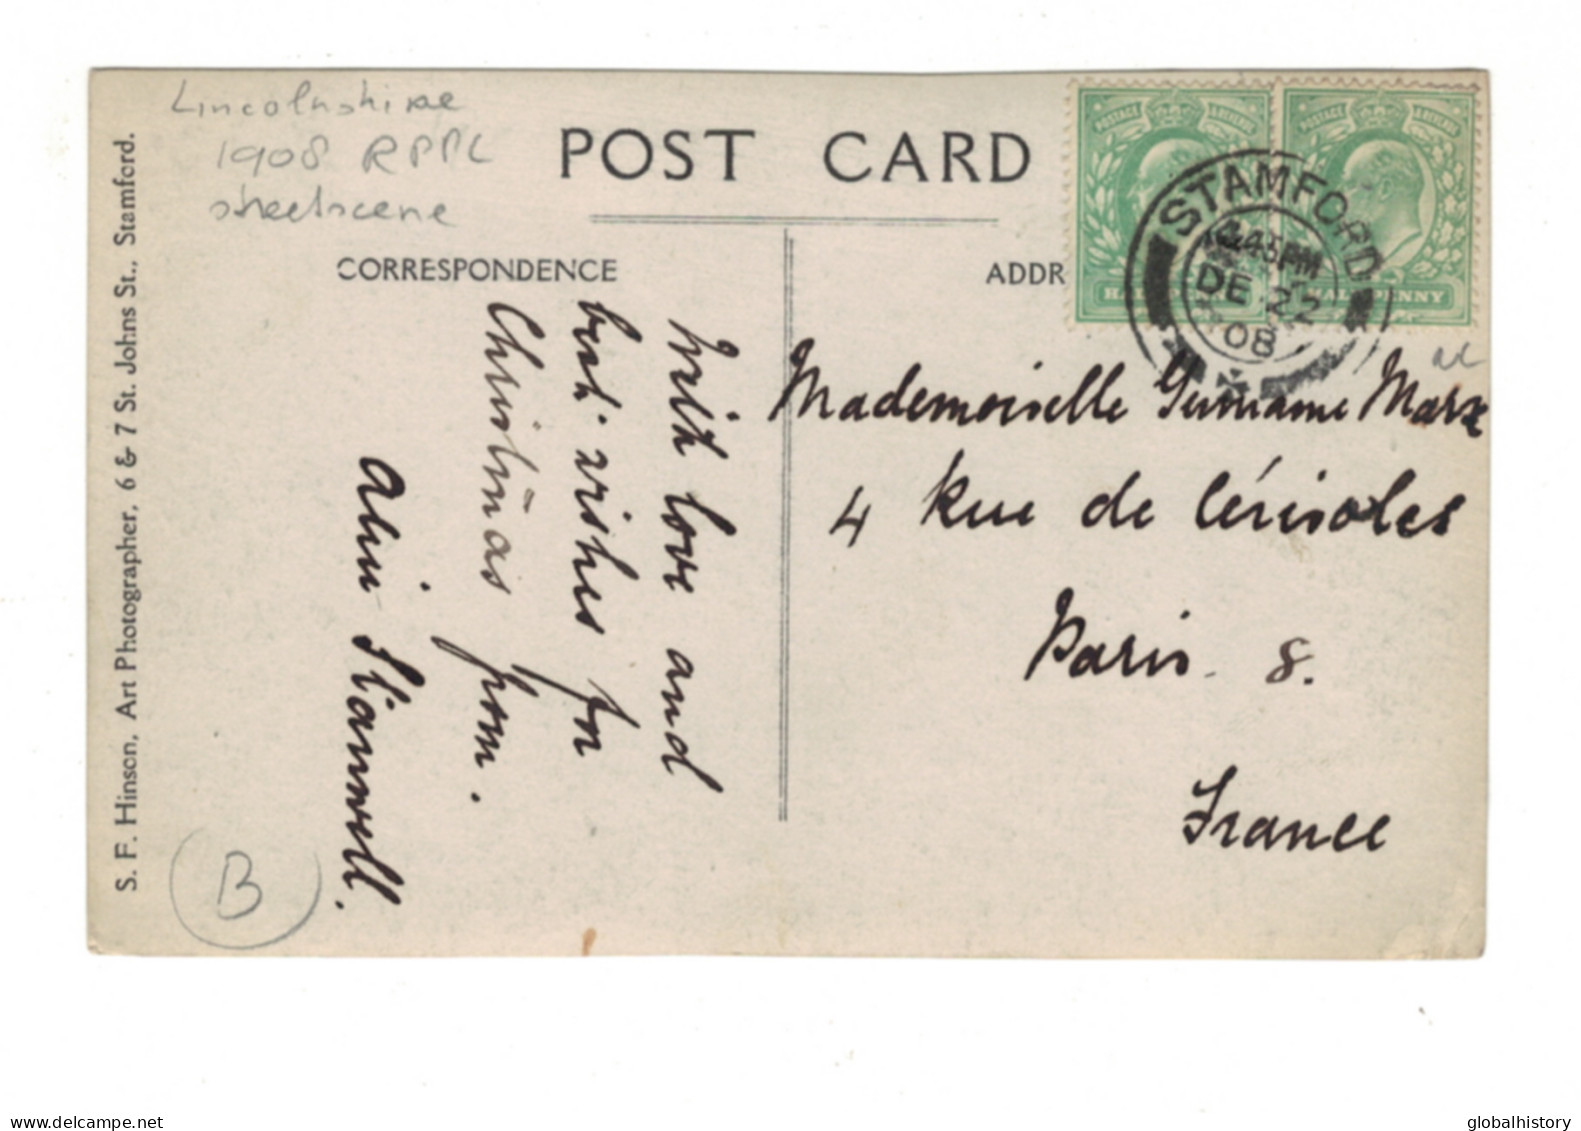 Lincolnshire
1908 RPPC
streetscene
POST CARD
CORRESPONDENCE
ADDR
POSTAGE REVENUE
POSTAGE REVENUE
HALFPENNY
STAMFORD
45PM
DE 22
08
With love and
best wishes for
Christmas from.
Stanwell.
Mademoiselle Germaine Marx
4 Rue de Cérisoles
Paris 8.
France
S. F. Hinson, Art Photographer, 6 & 7 St. Johns St., Stamford.
B
delcampe.net
globalhistory